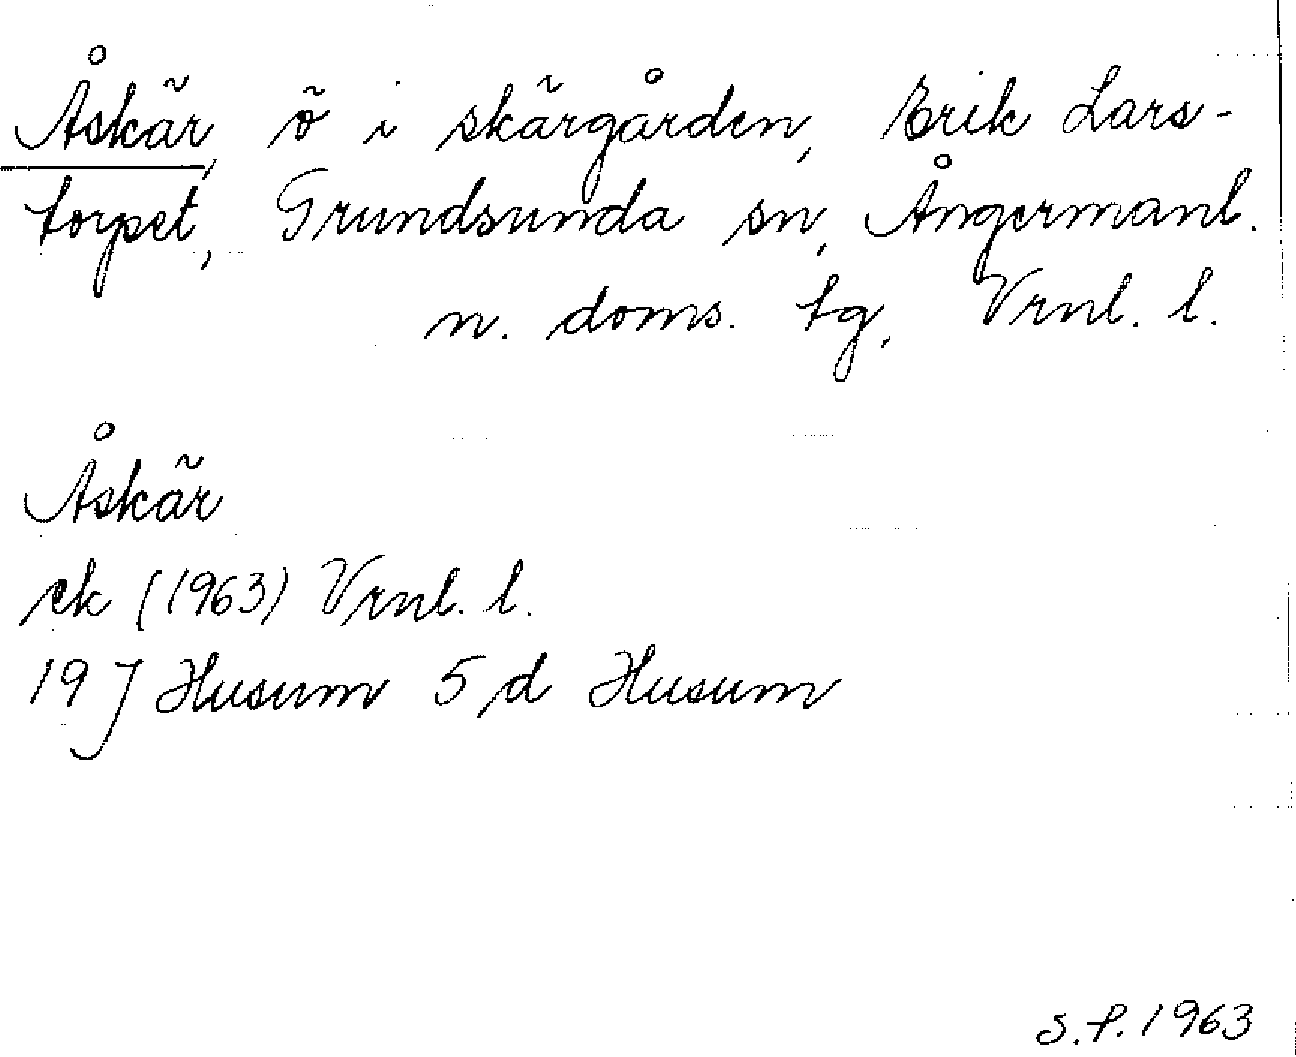 Åskär, ö i skärgården, Erik Lars-
torpet, Grundsunda sn, Ångermanl.
n. doms. tg, Vrnl. l.
Åskär
ek (1963) Vrnl. l.
19 J Husum 5 d Husum
S.P. 1963